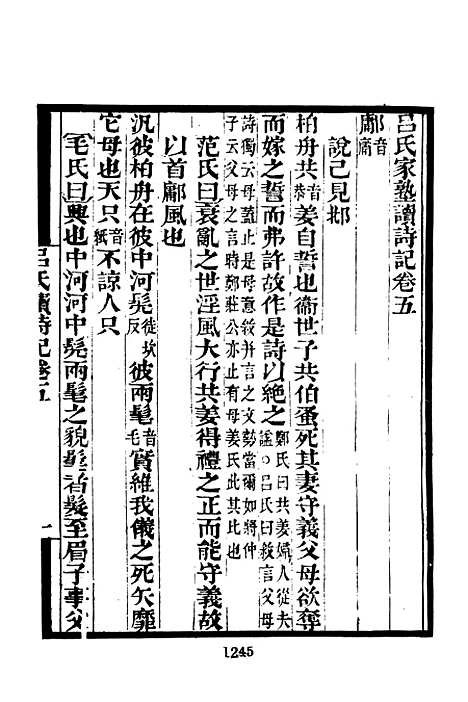 呂氏家塾讀詩記卷五
鄘音庸
說已見邶
柏舟共音恭姜自誓也衞世子共伯蚤死其妻守義父母欲奪
而嫁之誓而弗許故作是詩以絶之鄭氏曰共姜婦人從夫諡○呂氏曰敘言父母
詩獨云母蓋止是母意敘并言之文勢當爾如將仲
子云父母之言時鄭莊公亦止有母姜氏此其比也
范氏曰衰亂之世淫風大行共姜得禮之正而能守義故
以首鄘風也
汎彼柏舟在彼中河髧徒坎反彼兩髦音毛實維我儀之死矢靡
它母也天只音紙不諒人只
毛氏曰興也中河河中髧兩髦之貌髦者髮至眉子事父
呂氏讀詩記卷五
一
1245